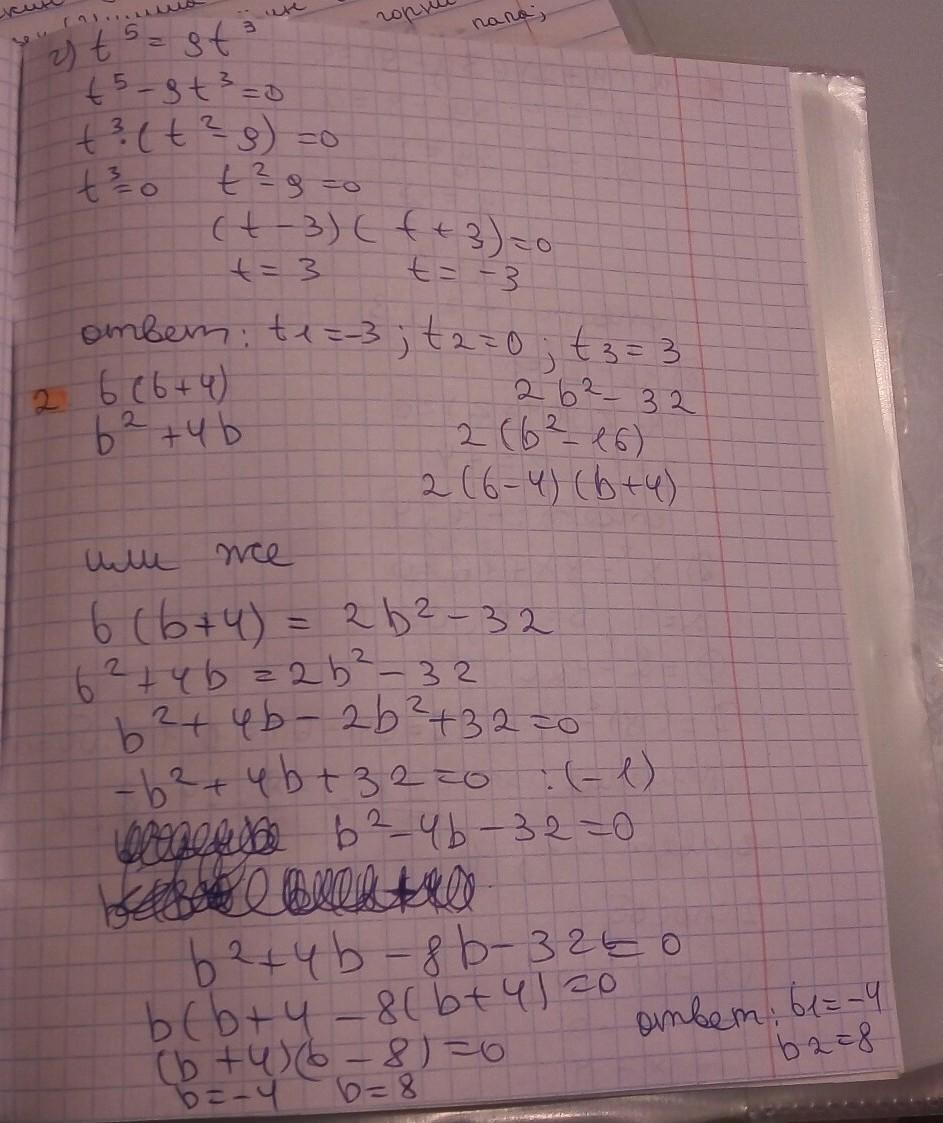 горни
папа;
г) t⁵ = 9t³
t⁵ - 9t³ = 0
t³·(t² - 9) = 0
t³ = 0   t² - 9 = 0
(t - 3)(t + 3) = 0
t = 3   t = -3
ответ: t1 = -3; t2 = 0; t3 = 3
2 b(b+4)   2b² - 32
b² + 4b   2(b² - 16)
2(b-4)(b+4)
или же
b(b+4) = 2b² - 32
b² + 4b = 2b² - 32
b² + 4b - 2b² + 32 = 0
-b² + 4b + 32 = 0   :(-1)
b² - 4b - 32 = 0
b² + 4b - 8b - 32 = 0
b(b+4 - 8(b+4) = 0
(b+4)(b-8) = 0
b = -4   b = 8
ответ: b1 = -4
b2 = 8